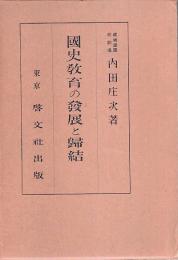 内田庄次著
國史敎育の發展と歸結
東京 啓文社出版